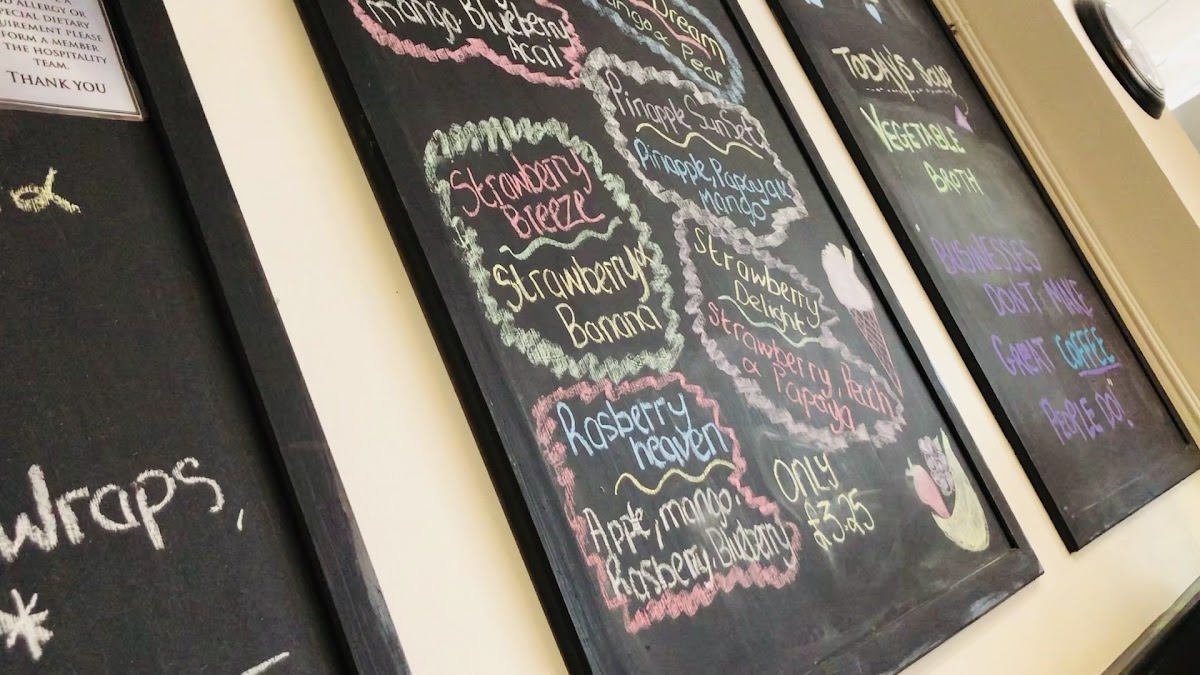 ALLERGY OR
SPECIAL DIETARY
REQUIREMENT PLEASE
INFORM A MEMBER
THE HOSPITALITY
TEAM.
THANK YOU
&
wraps,
*
mango, Blueberry
Acai
Dream
Mango & Pear
Pinapple Sunset
Pinapple, Papaya &
mango
Strawberry
Breeze
Strawberry &
Banana
Strawberry
Delight
Strawberry, Peach
& Papaya
Rasberry
heaven
Apple, mango,
Rasberry, Blueberry
ONLY
£3.25
TODAY'S SOUP
VEGETABLE
BROTH
BUSINESSES
DON'T MAKE
GREAT COFFEE
PEOPLE DO!"